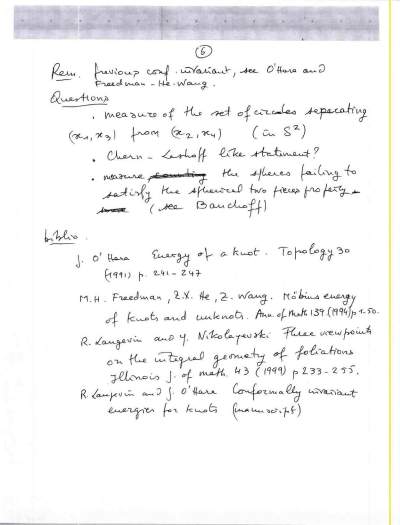 6
Rem. previous conf. invariant, see O'Hara and
Freedman-He-Wang.
Questions
• measure of the set of circles separating
(x1, x3) from (x2, x4) (in S²)
• Chern-Lashoff like statement?
• measure the spheres failing to
satisfy the spherical two pieces property
(see Banchoff)
biblio.
J. O'Hara Energy of a knot. Topology 30
(1991) p. 241-247
M.H. Freedman, Z.X. He, Z. Wang. Möbius energy
of knots and unknots. Ann. of Math 139 (1994) p 1-50.
R. Langevin and Y. Nikolayevski Three viewpoints
on the integral geometry of foliations
Illinois J. of math. 43 (1999) p 233-255.
R. Langevin and J. O'Hara Conformally invariant
energies for knots (manuscript)